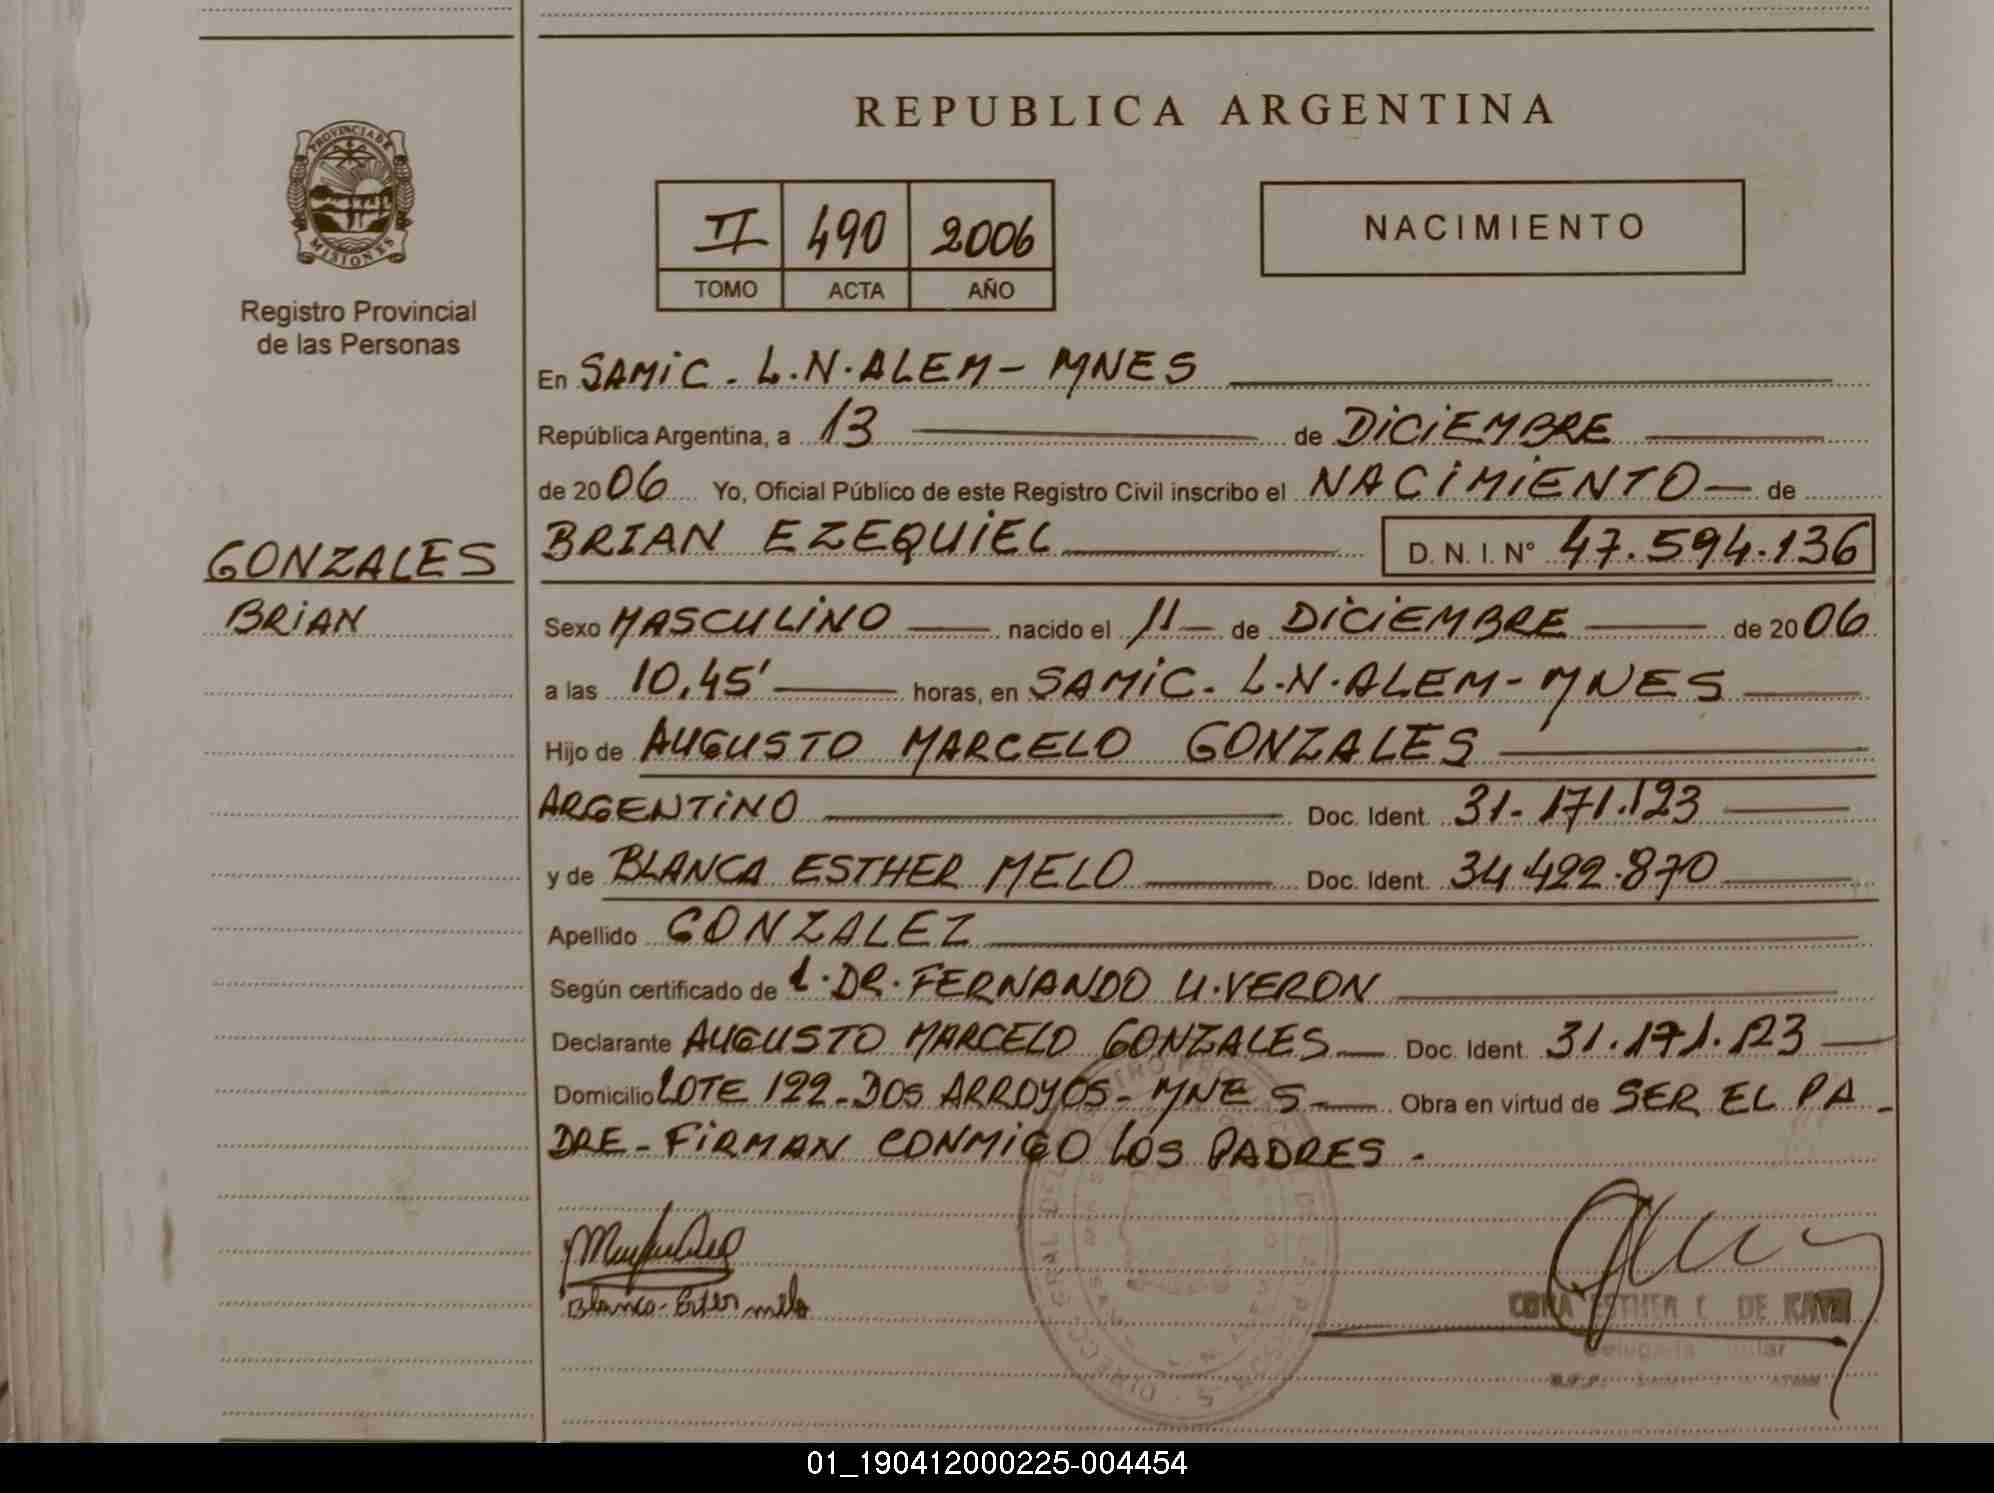 REPUBLICA ARGENTINA
PROVINCIA DE
MISIONES
Registro Provincial
de las Personas
II 490 2006
TOMO ACTA AÑO
NACIMIENTO
En SAMIC. L.N.ALEM - MNES
República Argentina, a 13 de DICIEMBRE
de 2006 Yo, Oficial Público de este Registro Civil inscribo el NACIMIENTO de
GONZALES
BRIAN
BRIAN EZEQUIEL D. N. I. N° 47.594.136
Sexo MASCULINO nacido el 11 de DICIEMBRE de 2006
a las 10,45' horas, en SAMIC. L.N.ALEM - MNES
Hijo de AUGUSTO MARCELO GONZALES
ARGENTINO Doc. Ident. 31.171.123
y de BLANCA ESTHER MELO Doc. Ident. 34.422.870
Apellido GONZALEZ
Según certificado de L.DR.FERNANDO U.VERON
Declarante AUGUSTO MARCELO GONZALES Doc. Ident. 31.171.123
Domicilio LOTE 122-DOS ARROYOS-MNES Obra en virtud de SER EL PA-
DRE-FIRMAN CONMIGO LOS PADRES.
Blanca Ester melo
ESTHER C. DE
01_190412000225-004454